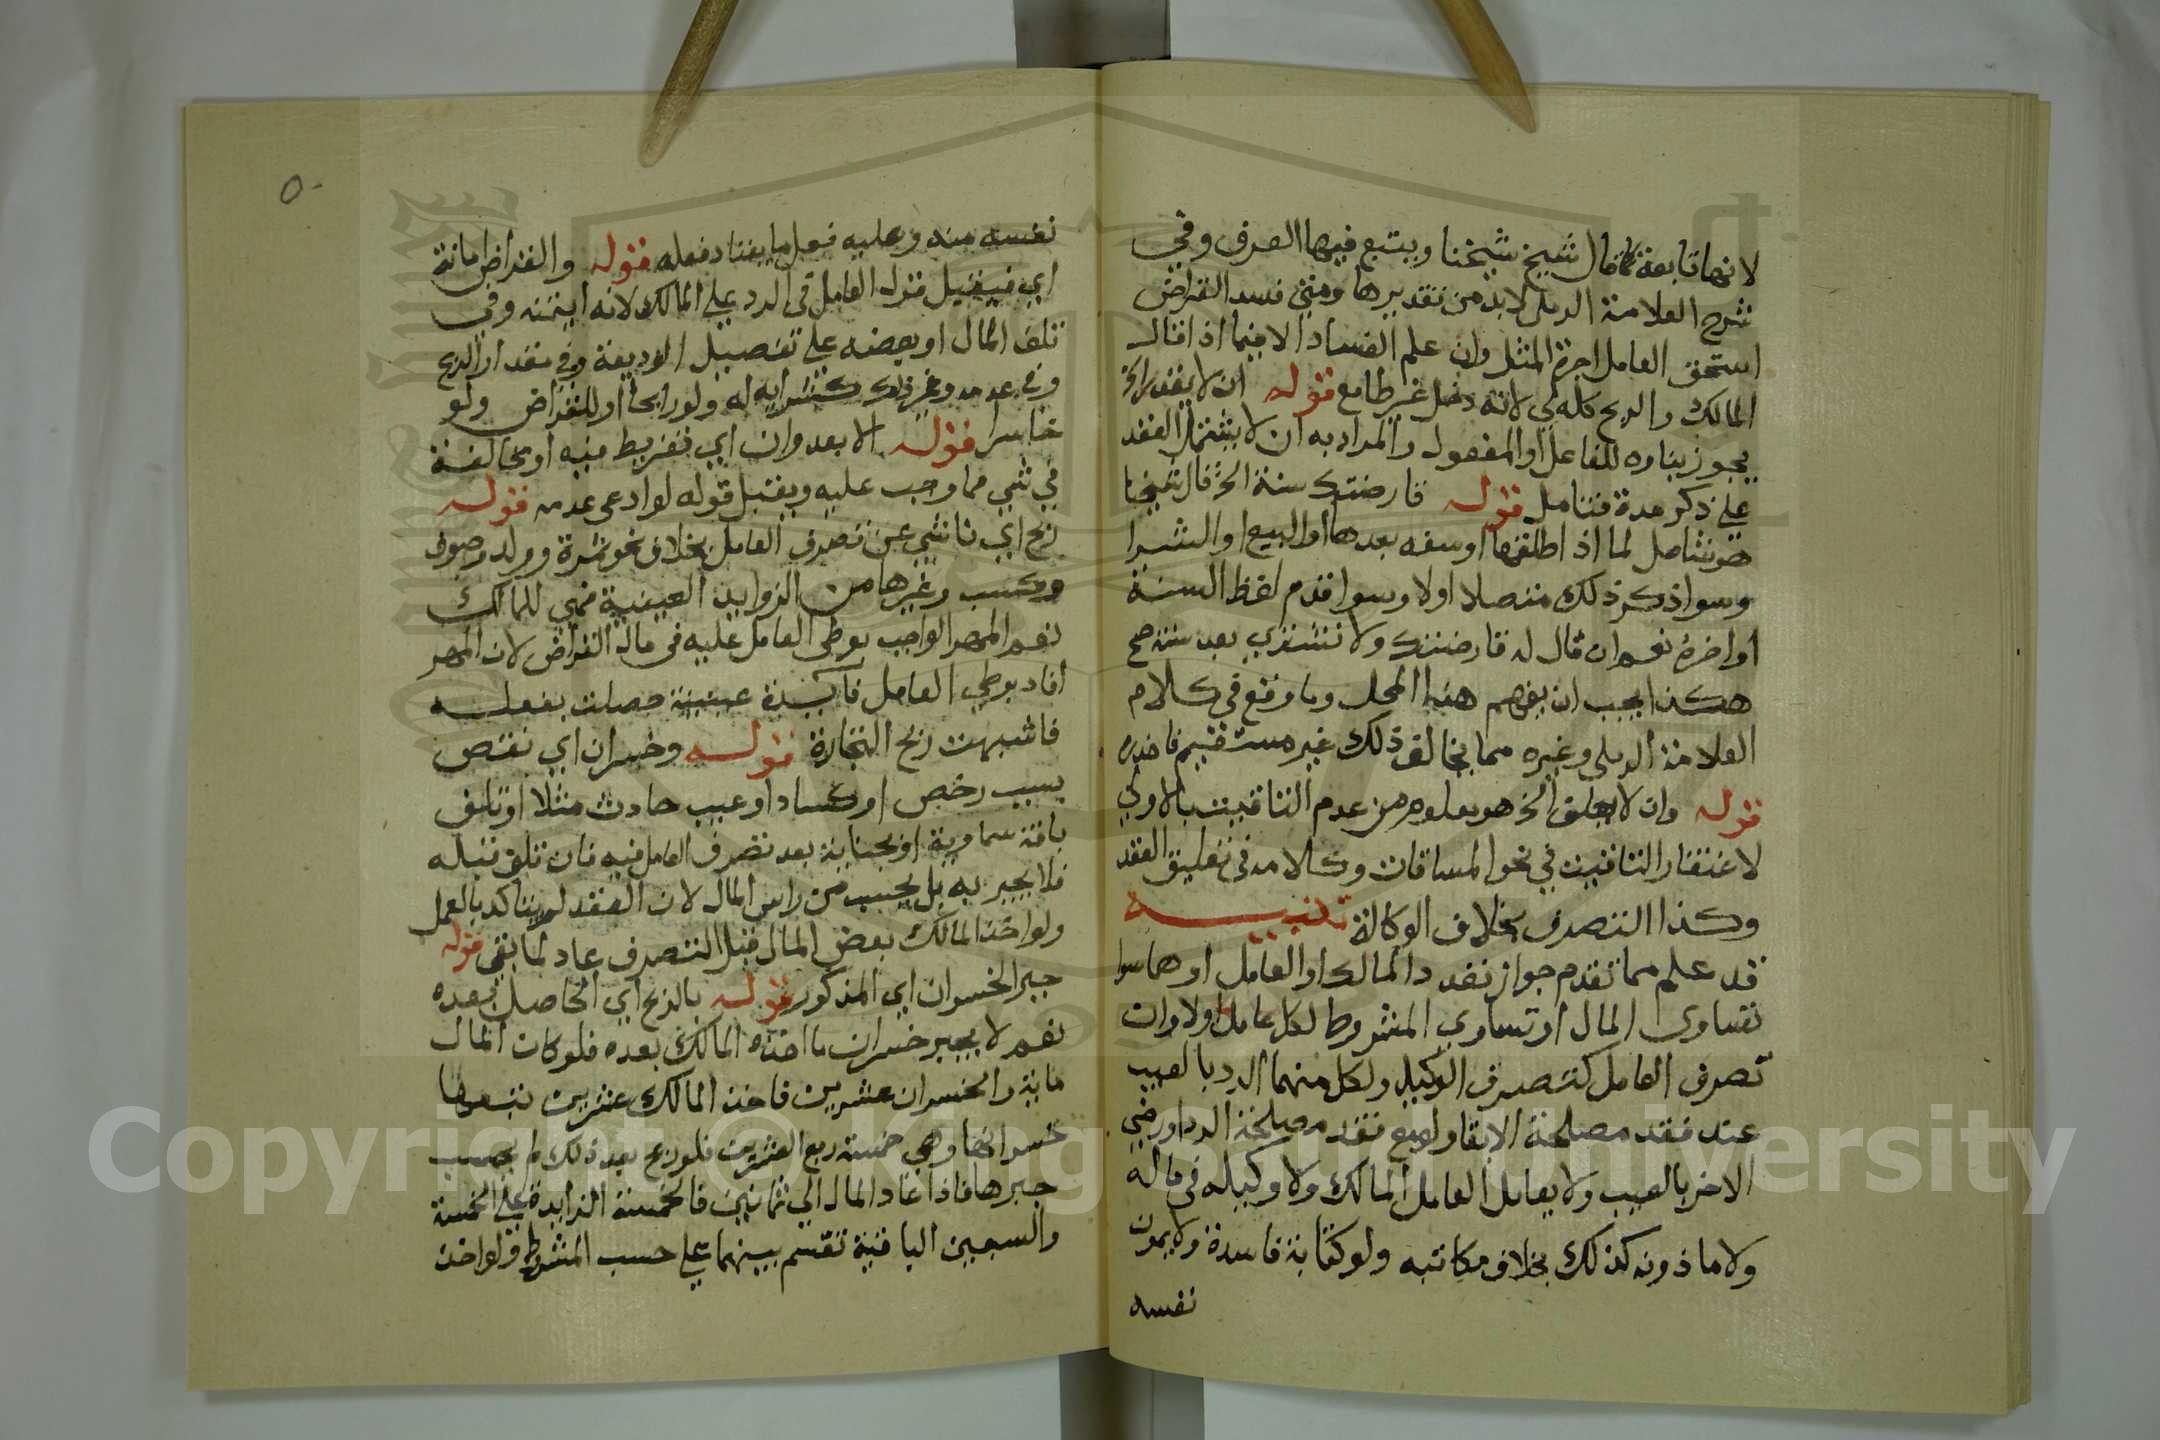 لانها تابعة كما قال شيخ شيخنا ويتبع فيها العرف وفي
شرح العلامة الرملي لابد من تقديرها ومتى فسد القراض
استحق العامل اجرة المثل وان علم الفساد الا فيما اذا قال
المالك والربح كله لي لانه دخل غير طامع قوله ان لا يقدر الخ
يجوز بناوه للفاعل او المفعول والمراد به ان لا يشتمل العقد
على ذكر مدة فتامل قوله قارضتك سنة الخ قال شيخنا
هو شامل لما اذا اطلقها او منعه بعدها او البيع او الشرا
وسوا ذكر ذلك متصلا اولا وسوا قدم لفظ السنة
او اخره نعم ان قال له قارضتك ولا تشتري بعد سنة صح
هكذا يجب ان يفهم هذا المحل وما وقع في كلام
العلامة الرملي وغيره مما يخالف ذلك غير مستقيم فاحذره
قوله وان لا يعلق الخ هو معلوم من عدم التاقيت بالاولي
لاغتفار التاقيت في نحو المساقات وكلامه في تعليق العقد
وكذا التصرف بخلاف الوكالة تنبيه
قد علم مما تقدم جواز تعدد المالك او العامل او هما سوا
تساوى المال او تساوي المشروط لكل عامل اولا وان
تصرف العامل كتصرف الوكيل ولكل منهما الرد بالعيب
عند فقد مصلحة الابقا ولو مع فقد مصلحة الرد او رضي
الاخر بالعيب ولا يعامل العامل المالك ولا وكيله في ماله
ولا ماذونه كذلك بخلاف مكاتبه ولو كتابة فاسدة ولا يمون
نفسه
٥٠
نفسه منه وعليه فعل ما يعتاد فعله قوله والقراض امانة
اي فيقبل قول العامل في الرد على المالك لانه ايتمنه وفي
تلف المال او بعضه على تفصيل الوديعة وفي مقدار الربح
وفي عدمه وغير ذلك كشرايه له ولو رابحا او للقراض ولو
خاسرا قوله الا بعدوان اي بتفريط منه او مخالفة
في شي مما وجب عليه ويقبل قوله لو ادعى عدمه قوله
ربح اي ناشي عن تصرف العامل بخلاف نحو ثمرة وولد وصوف
وكسب وغيرها من الزوايد العينية فهي للمالك
نعم المهر الواجب بوطى العامل عليه في مال القراض لان المهر
افاد بوطي العامل فايدة عينية حصلت بفعله
فاشبهت ربح التجارة قوله وخسران اي نقص
بسبب رخص او كساد او عيب حادث مثلا او تلف
بافة سماوية او بجناية بعد تصرف العامل فيه فان تلف قبله
فلا يجبر به بل يحسب من راس المال لان العقد لم يتاكد بالعمل
ولو اخذ المالك بعض المال قبل التصرف عاد لما بقى قوله
جبر الخسران اي المذكور قوله بالربح اي الحاصل بعده
نعم لا يجبر خسران ما اخذه المالك بعده فلو كان المال
ماية والخسران عشرين فاخذ المالك عشرين تتبعها
خسرانها وهي خمسة ربع العشرين فلو ربح بعد ذلك لم يحسب
جبرها فاذا عاد المال الي ثمانين فالخمسة الزايدة على الخمسة
والسبعين الباقية تقسم بينهما على حسب المشروط ولو اخذ
Copyright © King Saud University